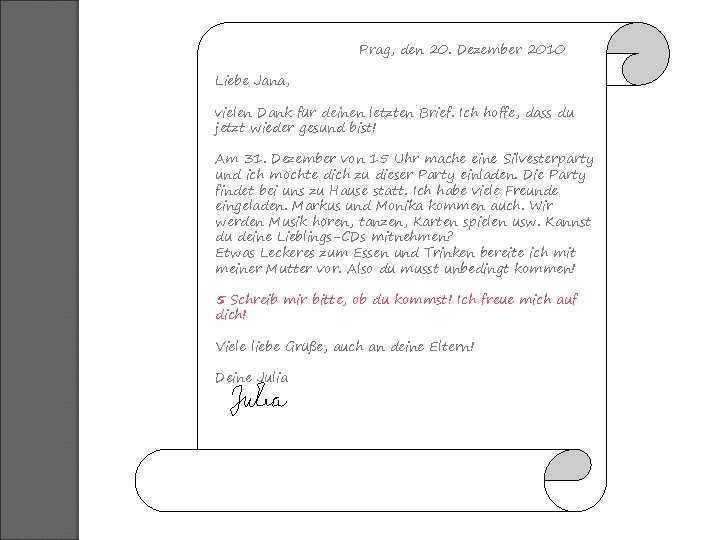 Prag, den 20. Dezember 2010
Liebe Jana,
vielen Dank für deinen letzten Brief. Ich hoffe, dass du
jetzt wieder gesund bist!
Am 31. Dezember von 15 Uhr mache eine Silvesterparty
und ich möchte dich zu dieser Party einladen. Die Party
findet bei uns zu Hause statt. Ich habe viele Freunde
eingeladen. Markus und Monika kommen auch. Wir
werden Musik hören, tanzen, Karten spielen usw. Kannst
du deine Lieblings-CDs mitnehmen?
Etwas Leckeres zum Essen und Trinken bereite ich mit
meiner Mutter vor. Also du musst unbedingt kommen!
5 Schreib mir bitte, ob du kommst! Ich freue mich auf
dich!
Viele liebe Grüße, auch an deine Eltern!
Deine Julia
Julia